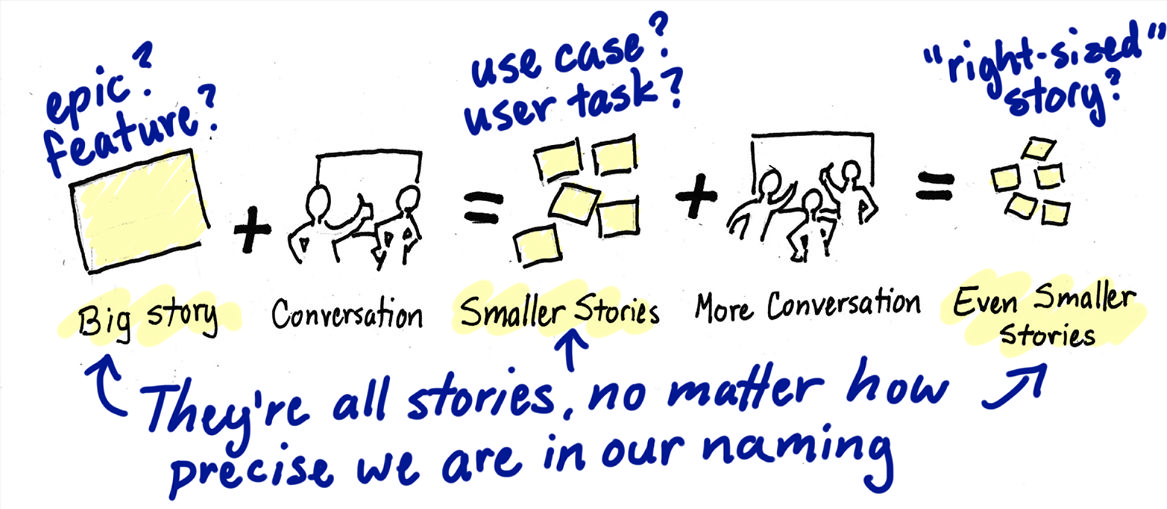 epic?
feature?
use case?
user task?
"right-sized"
story?
+
=
+
=
Big story
Conversation
Smaller Stories
More Conversation
Even Smaller
Stories
They're all stories, no matter how
precise we are in our naming